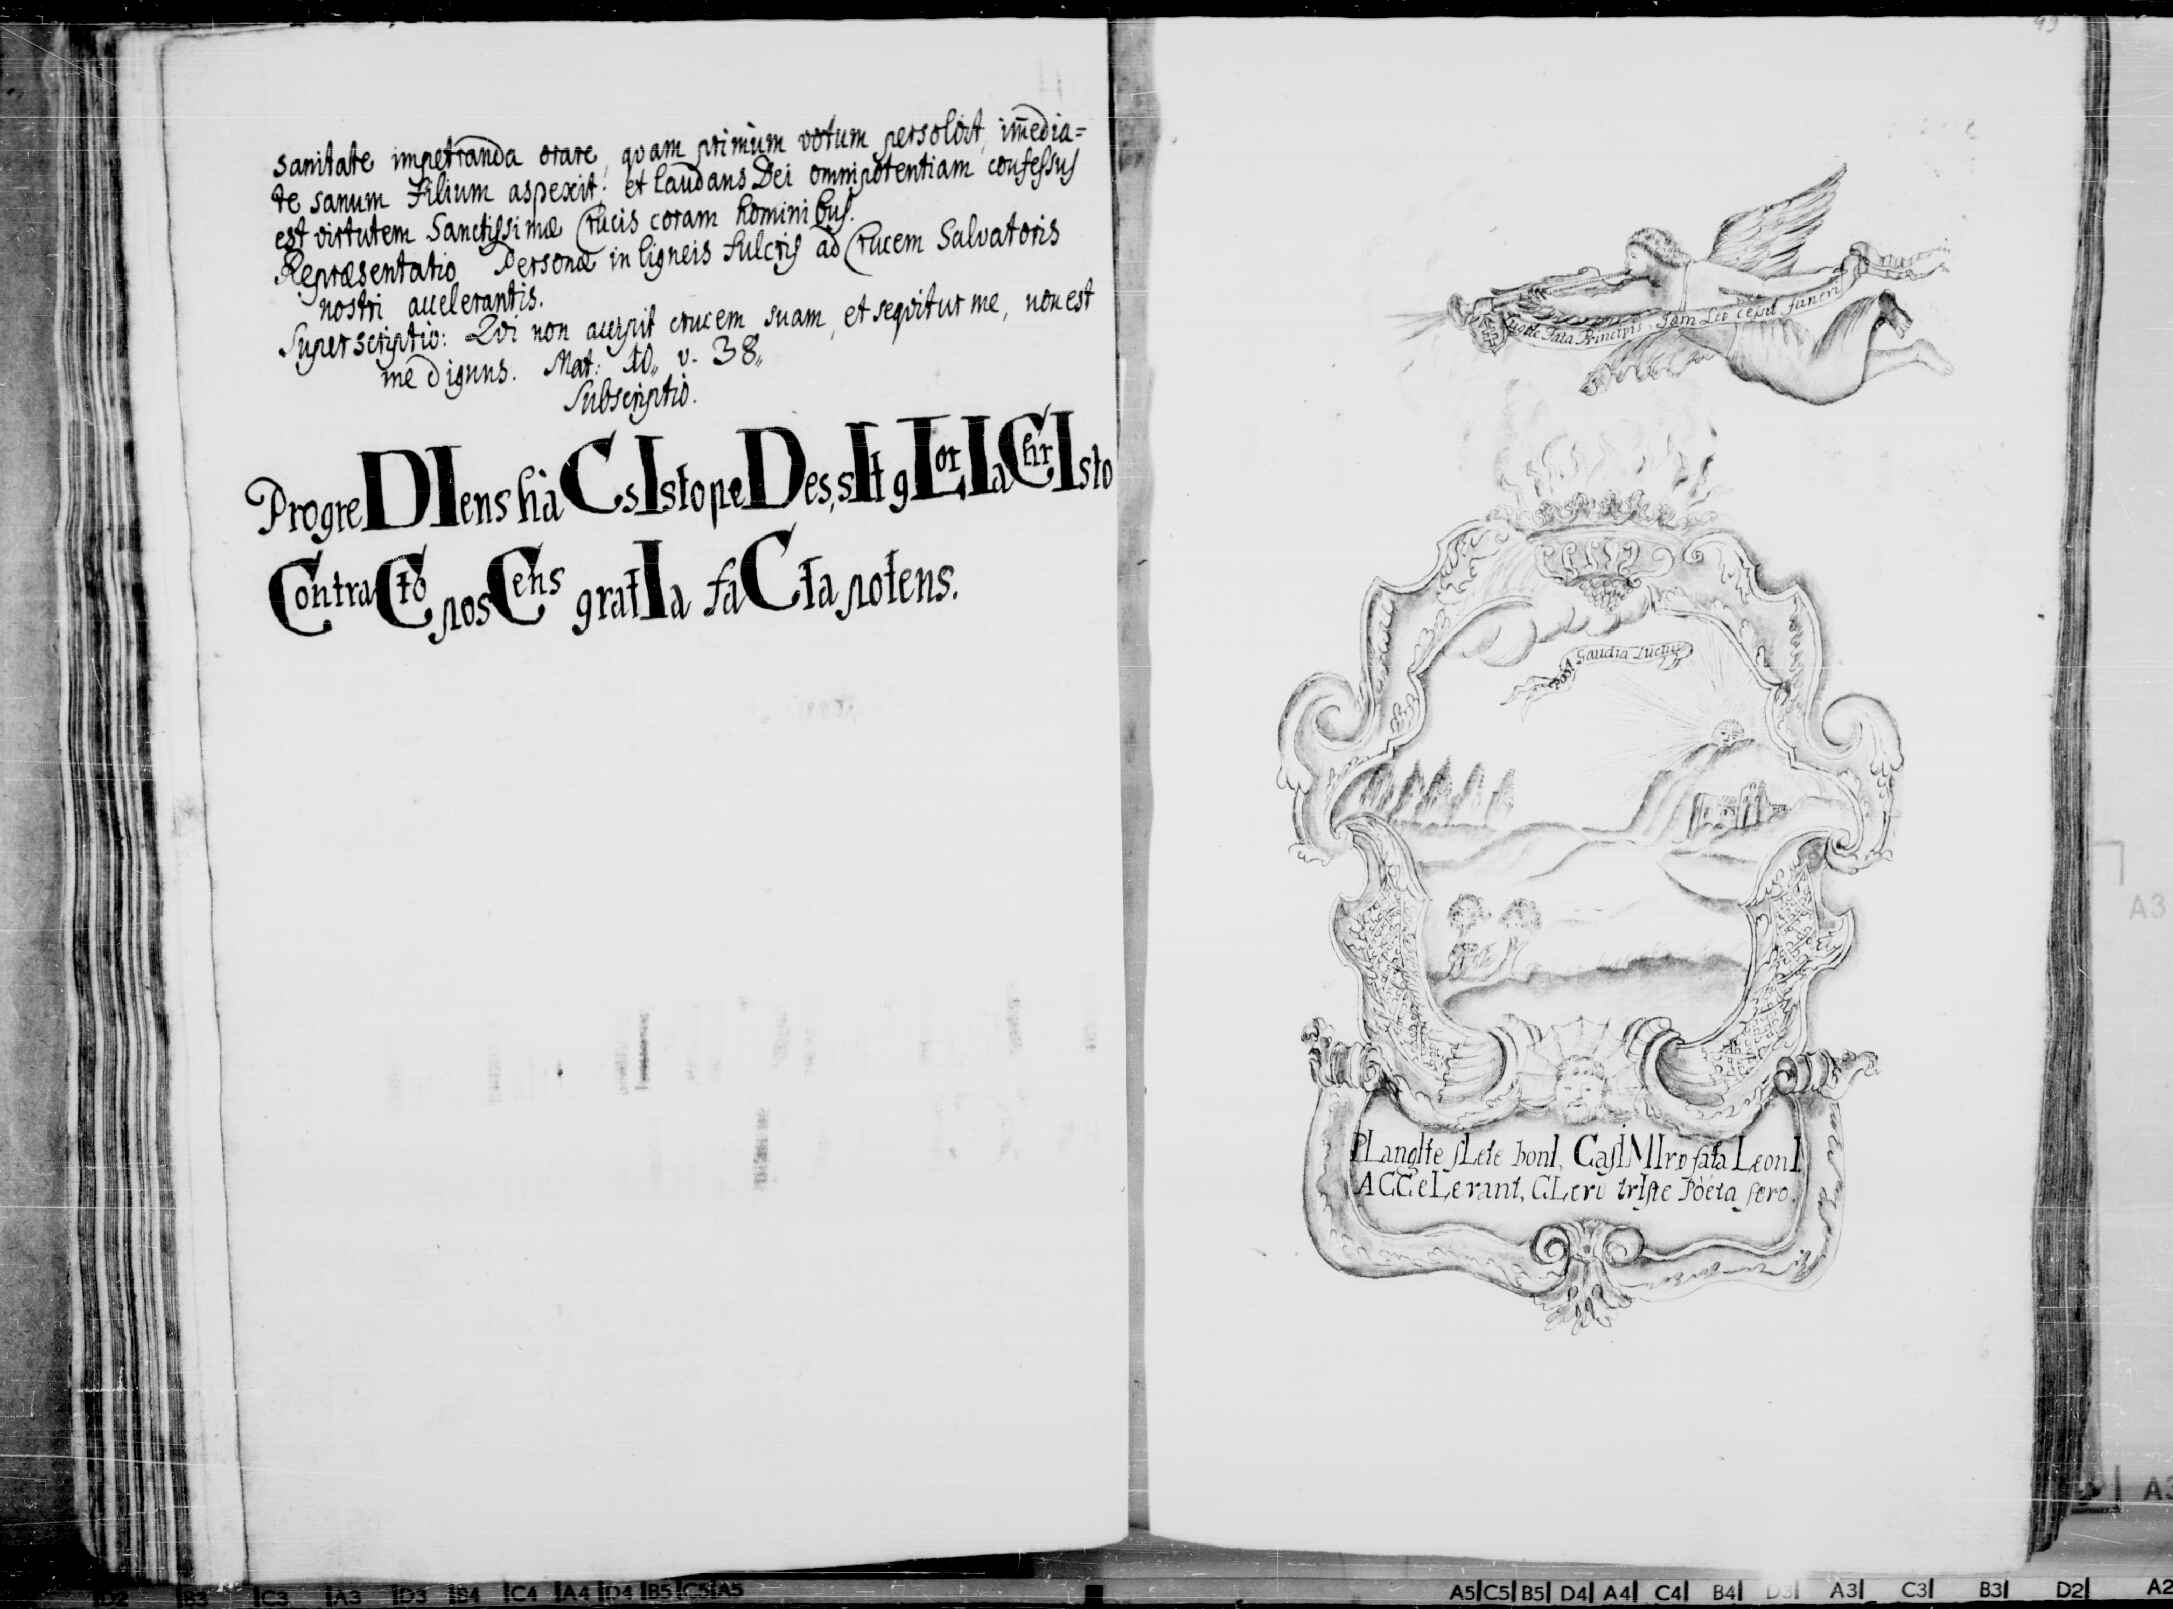 sanitate impetranda orare, quam primum votum persolvit, im̄edia=
te sanum Filium aspexit: et laudans Dei omnipotentiam confessus
est virtutem Sanctissimæ Crucis coram hominibus.
Repræsentatio Personæ in ligneis fulcris ad Crucem Salvatoris
nostri accelerantis.
Superscriptio: Qvi non accipit crucem suam, et seqvitur me, non est
me dignus. Mat: 10,, v. 38,,
Subscriptio.
ProgreDIens hàC sIsto peDes, sIt gLorIa ChrIsto
ContraCto posCens gratIa faCta potens.
99
Fata Principis. Jam Leo cessit funeri
post Gaudia Luctus
PLangIte fLete bonI, CasIMIro fata LeonI
ACCeLerant, CLero trIste Poëta fero.
A3
A3
D2 B3 C3 A3 D3 B4 C4 A4 D4 B5 C5 A5
A5 C5 B5 D4 A4 C4 B4 D3 A3 C3 B3 D2 A2